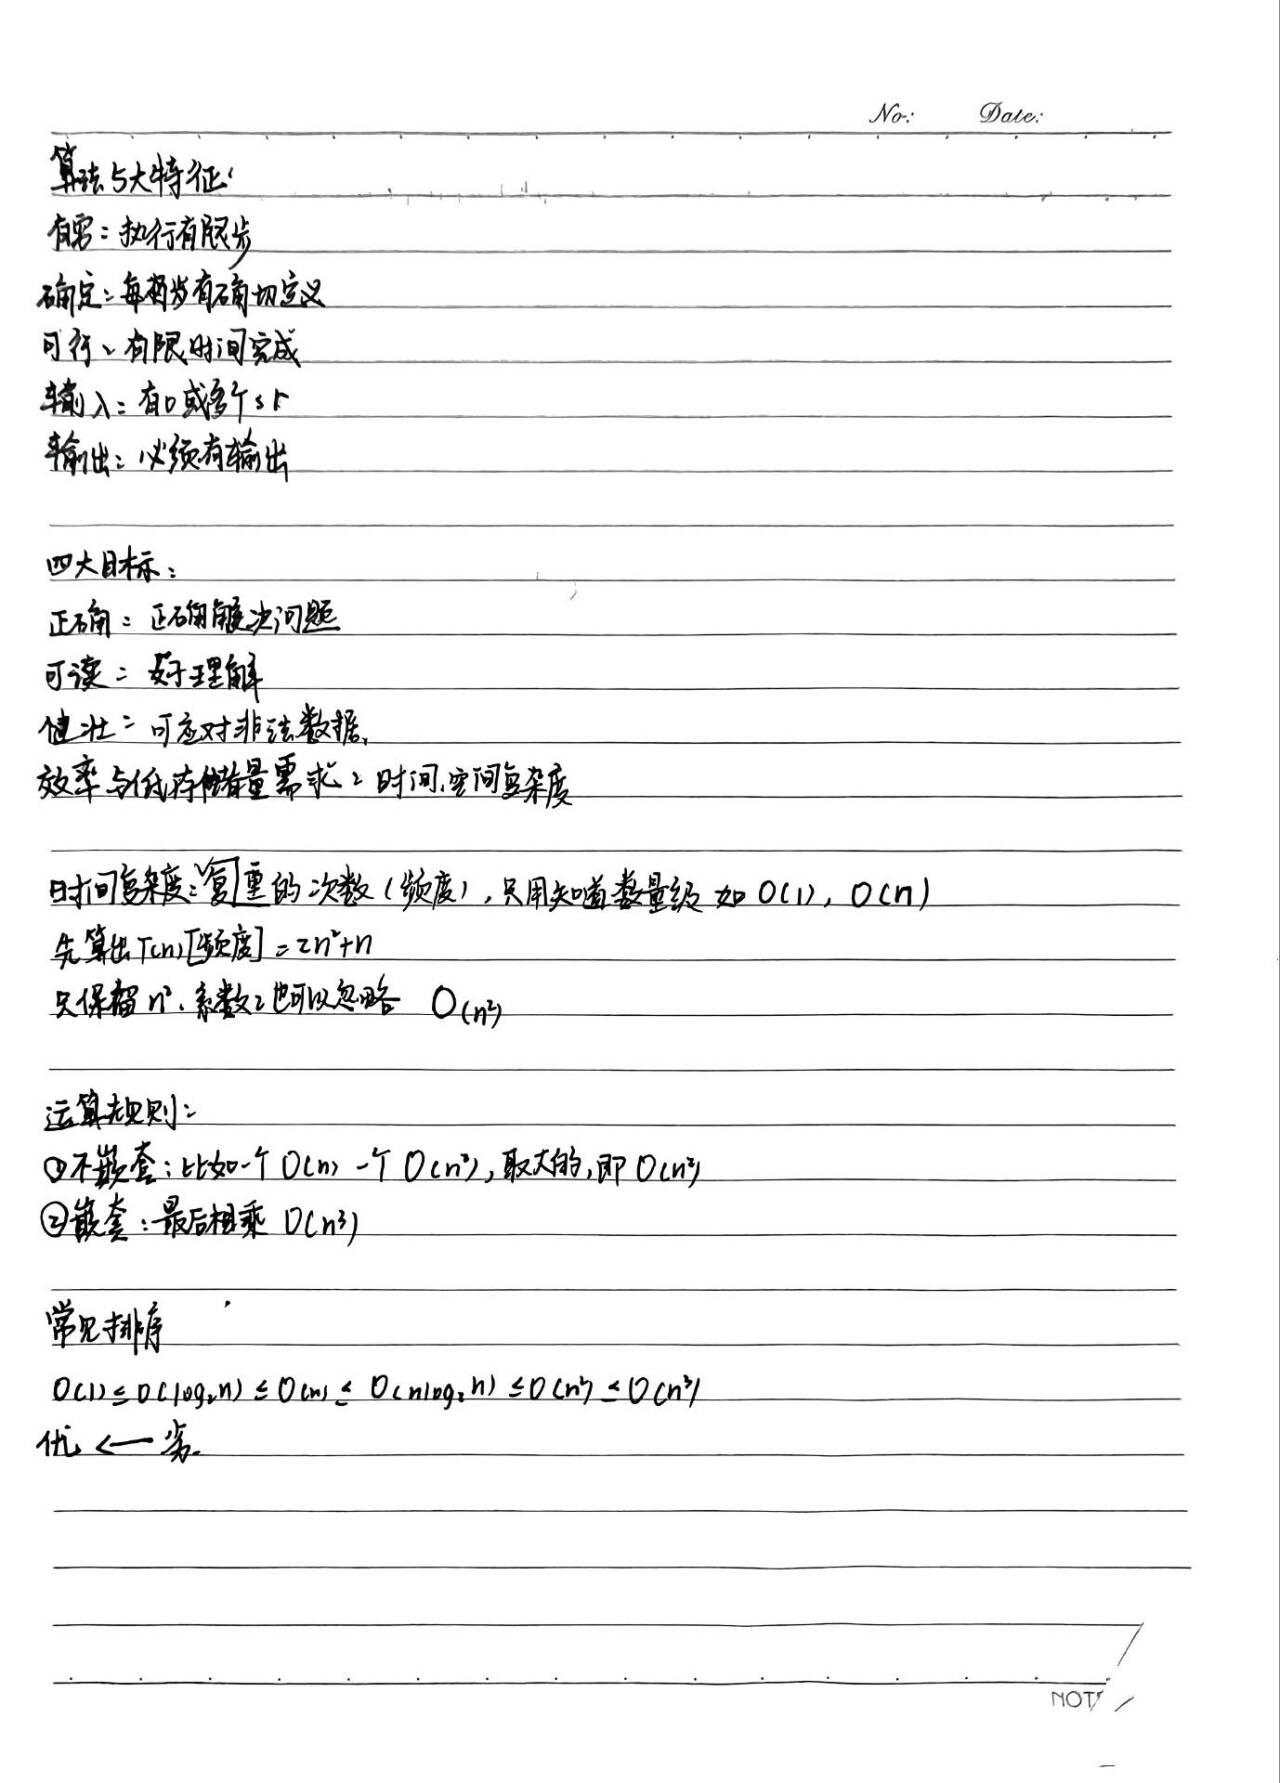 No: Date:
算法5大特征:
有穷:执行有限步
确定:每步有确切定义
可行:有限时间完成
输入:有0或多个
输出:必须有输出
四大目标:
正确:正确解决问题
可读:好理解
健壮:可应对非法数据.
效率与低存储量需求:时间,空间复杂度
时间复杂度:重复的次数(频度),只用知道数量级 如 O(1), O(n)
先算出T(n)[频度]=2n²+n
只保留n²,系数2也可以忽略 O(n²)
运算规则:
①不嵌套:比如一个O(n) 一个O(n²),取大的,即O(n²)
②嵌套:最后相乘 O(n³)
常见排序
O(1)≤O(log₂n)≤O(n)≤O(nlog₂n)≤O(n²)≤O(n³)
优 ← 劣.
NOT